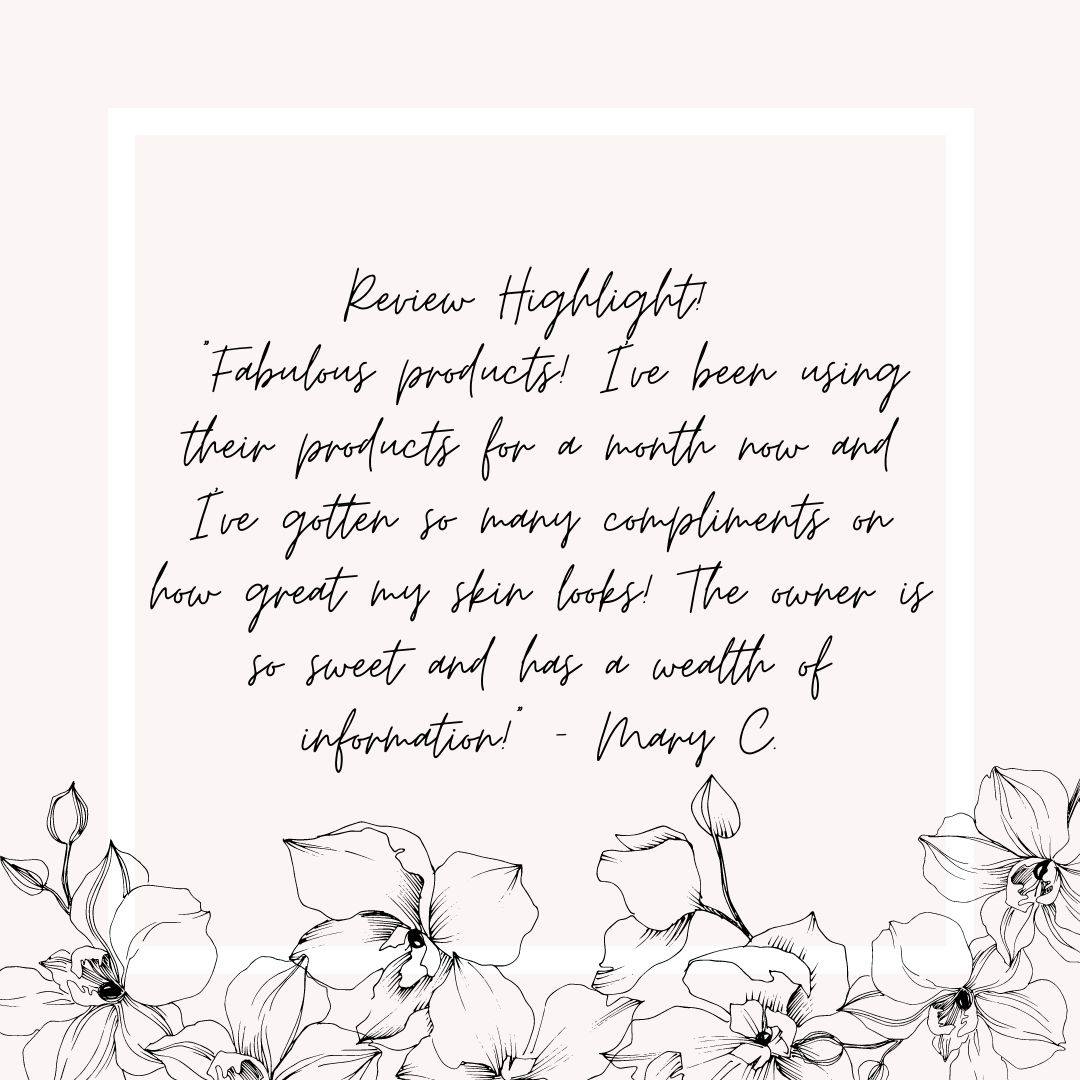 Review Highlight!
"Fabulous products! I've been using
their products for a month now and
I've gotten so many compliments on
how great my skin looks! The owner is
so sweet and has a wealth of
information!" - Mary C.